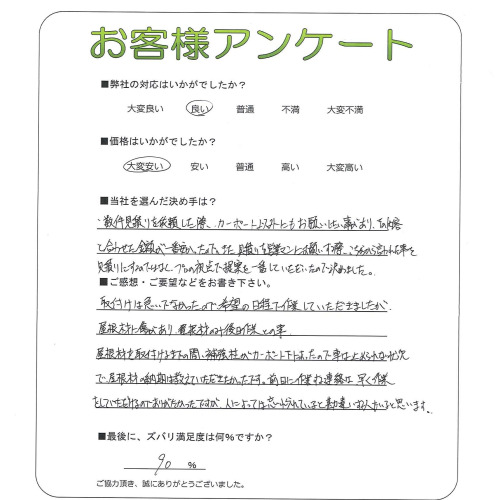 お客様アンケート
■弊社の対応はいかがでしたか?
大変良い 良い 普通 不満 大変不満
■価格はいかがでしたか?
大変安い 安い 普通 高い 大変高い
■当社を選んだ決め手は?
数件見積りを依頼した際、カーポート以外にもお願いしたい事があり、
合わせた金額が一番安かったので。また見積りを営業マンにお願いする際、
見積りにするのではなく、プロの視点で提案を一番していただいたので決めました。
■ご感想・ご要望などをお書き下さい。
取付けは急いでなかったので希望の日程で作業していただきましたが、
屋根材に傷があり、屋根材のみ後日作業との事。
屋根材を取付けるまでの間、補強柱がカーポート下にあったので車は止められない状況
で、屋根材の納期は教えていただきたかったです。前日に作業する連絡は早く作業
をしていただけるのでありがたかったですが、人によっては忘れられていると勘違いする人がいると思います。
■最後に、ズバリ満足度は何%ですか?
90 %
ご協力頂き、誠にありがとうございました。